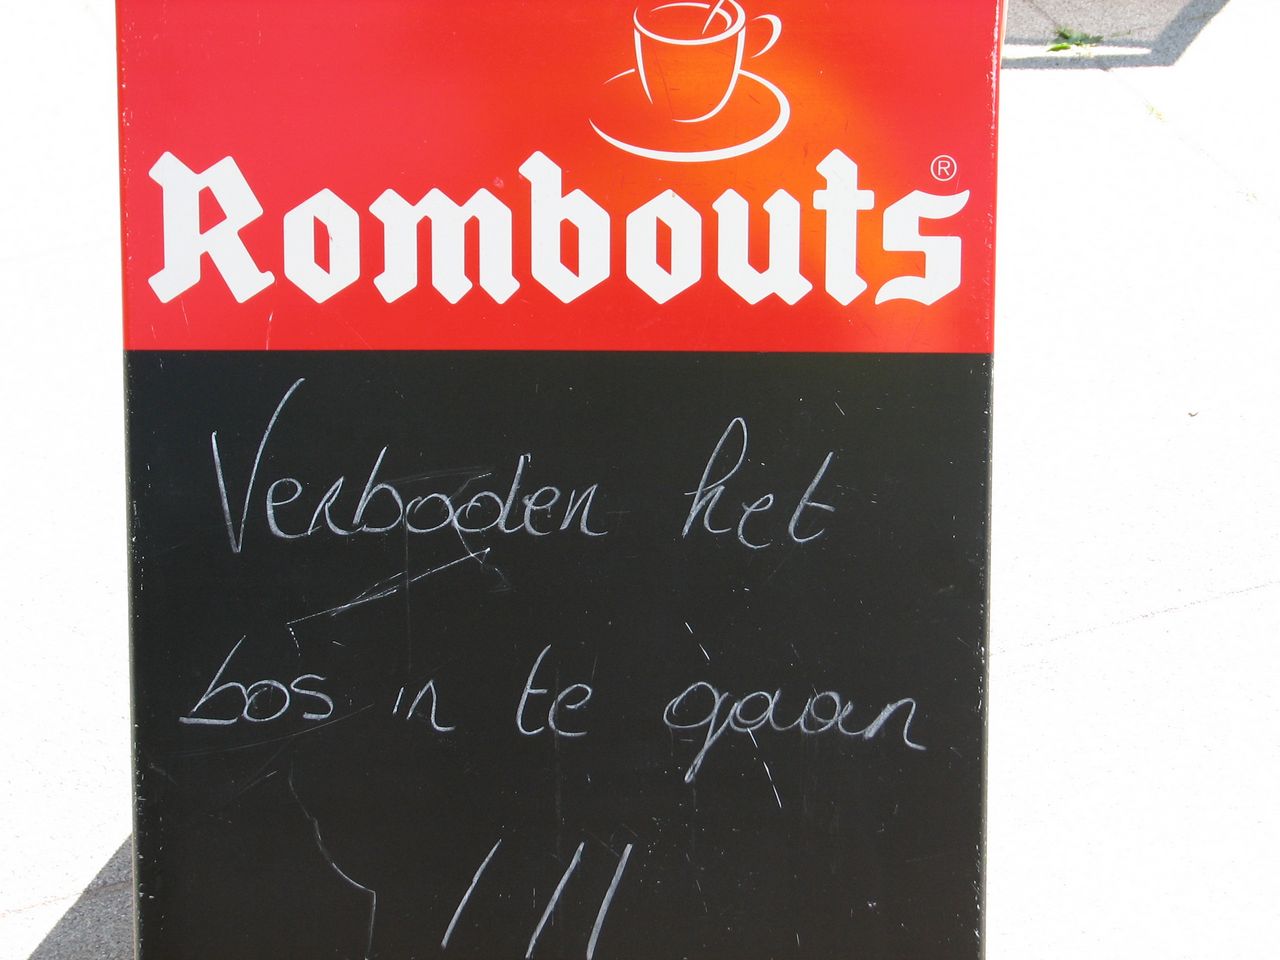 Rombouts®
Verboden het
bos in te gaan
!!!